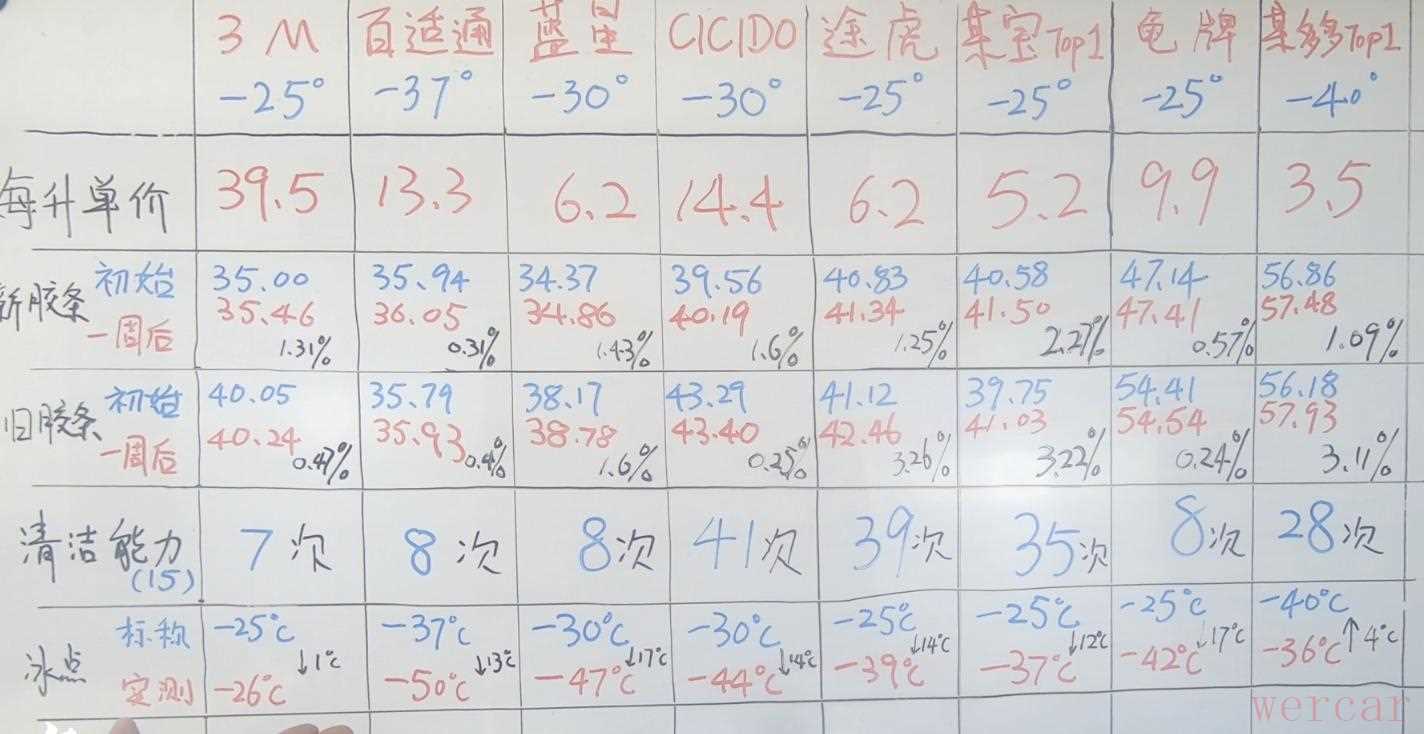 3M 百适通 蓝星 CICIDO 途虎 某宝Top1 龟牌 某多多Top1
-25° -37° -30° -30° -25° -25° -25° -40°
每升单价 39.5 13.3 6.2 14.4 6.2 5.2 9.9 3.5
新胶条 初始 35.00 35.94 34.37 39.56 40.83 40.58 47.14 56.86
一周后 35.46 36.05 34.86 40.19 41.34 41.50 47.41 57.48
1.31% 0.31% 1.43% 1.6% 1.25% 2.27% 0.57% 1.09%
旧胶条 初始 40.05 35.79 38.17 43.29 41.12 39.75 54.41 56.18
一周后 40.24 35.93 38.78 43.40 42.46 41.03 54.54 57.93
0.47% 0.4% 1.6% 0.25% 3.26% 3.22% 0.24% 3.11%
清洁能力 7次 8次 8次 41次 39次 35次 8次 28次
(15)
冰点 标称 -25℃ -37℃ -30℃ -30℃ -25℃ -25℃ -25℃ -40℃
↓1℃ ↓13℃ ↓17℃ ↓14℃ ↓14℃ ↓12℃ ↓17℃ ↑4℃
实测 -26℃ -50℃ -47℃ -44℃ -39℃ -37℃ -42℃ -36℃
wercar